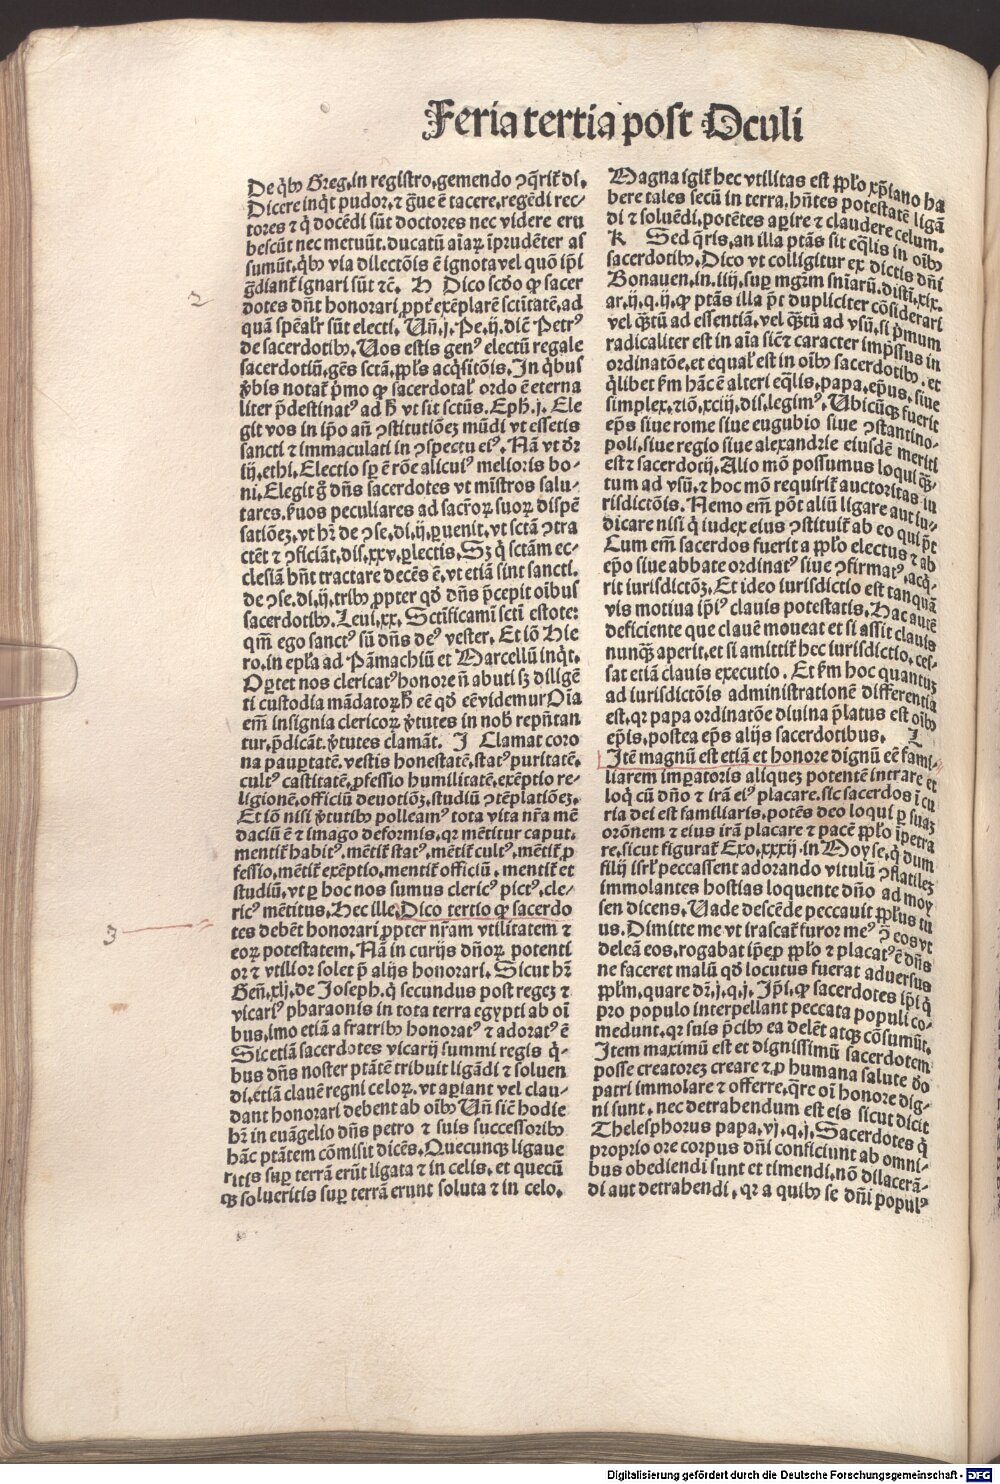 Feria tertia post Oculi
De q̇bꝰ Greg. in registro. gemendo ꝯq̄rit᷑ di.
Dicere inq̇t pudor. ⁊ g̃ue ē tacere. regēdi rec-
tores ⁊ q̇ docēdi sūt doctores nec videre eru
bescūt nec metuūt. ducatū aīaꝝ īprudēter as
sumūt. q̇bꝰ via dilectōis ē ignota vel quō ip̄i
g̃diant᷑ ignari sūt ⁊c̄. H Dico scd̄o ꝙ sacer
dotes dn̄t honorari. ꝓpt᷑ exēplarē sctītatē. ad
quā sp̄eal'r sūt electi. Un̄. j. Pe. ij. dic̄ Petrꝰ
de sacerdotibꝰ. Uos estis genꝰ electū regale
sacerdotiū. gēs sctā. ppl̄s acq̇sitōis. In q̇bus
v̓bis notat᷑ p̓mo ꝙ sacerdotal' ordo ē eterna
liter p̄destinatꝰ ad ḣ vt sit sctūs. Eph. j. Ele
git vos in ip̄o an̄ ꝯstitutiōeꝫ mūdi vt essetis
sancti ⁊ immaculati in ꝯspectu eiꝰ. Nā vt dr̄
iij. ethi. Electio sp̄ ē rōe alicuiꝰ melioris bo-
ni. Elegit g̊ dn̄s sacerdotes vt mīstros salu-
tares. s̓uos peculiares ad sacroꝝ suoꝝ dispē
satiōeꝫ. vt hr̄ de ꝯse. di. ij. ꝑuenit. vt sctā ꝯtra
ctēt ⁊ ꝯficiāt. dis. xxv. ꝑlectis. Sꝫ q̇ sctām ec-
clesiā hn̄t tractare decēs ē. vt etiā sint sancti.
de ꝯse. di. ij. tribꝰ. ꝓpter qd̄ dn̄s p̄cepit oībus
sacerdotibꝰ. Leui. xx. Sctīficamī sctī estote:
qm̄ ego sanctꝰ sū dn̄s deꝰ vester. Et iō Hie
ro. in epl̄a ad Pāmachiū et Marcellū inq̇t.
Oꝑtet nos clericatꝰ honore n̄ abuti sꝫ diligē
ti custodia mādatoꝝ ḣ eē qd̄ eē videmur Oīa
em̄ insignia clericoꝝ v̓tutes in nob̄ repn̄tan
tur. p̄dicāt. v̓tutes clamāt. I Clamat coro
na pauꝑtatē. vestis honestatē. statꝰ puritatē.
cultꝰ castitatē. ꝓfessio humilitatē. exēptio re-
ligionē. officiū deuotiōꝫ. studiū ꝯtēplatiōeꝫ.
Et iō nisi v̓tutibꝰ polleamꝰ tota vita nr̄a mē
daciū ē ⁊ imago deformis. qꝛ mētitur caput.
mentit᷑ habitꝰ. mētit᷑ statꝰ. mētit᷑ cultꝰ. mētit᷑ ꝓ
fessio. mētit᷑ exēptio. mētit᷑ officiū. mentit᷑ et
studiū. vt ꝑ hoc nos sumus clericꝰ pictꝰ. cle-
ricꝰ mētitus. Hec ille. Dico tertio ꝙ sacerdo
tes debēt honorari ꝓpter nr̄am vtilitatem ⁊
eoꝝ potestatem. Nā in curijs dn̄oꝝ potenti
or ⁊ vtilior solet p̄ alijs honorari. Sicut hr̄
Gen̄. xlj. de Joseph. q̇ secundus post regeꝫ ⁊
vicariꝰ pharaonis in tota terra egypti ab oī
bus. imo etiā a fratribꝰ honoratꝰ ⁊ adoratꝰ ē
Sic etiā sacerdotes vicarij summi regis q̇-
bus dn̄s noster ptātē tribuit ligādi ⁊ soluen
di. etiā clauē regni celoꝝ. vt aꝑiant vel clau-
dant honorari debent ab oībꝰ Un̄ sic̄ hodie
hr̄ in euāgelio dn̄s petro ⁊ suis successoribꝰ
hāc ptātem cōmisit dicēs. Quecunqꝫ ligaue
ritis suꝑ terrā erūt ligata ⁊ in celis. et quecū
qꝫ solueritis suꝑ terrā erunt soluta ⁊ in celo.
2
3
Magna igit᷑ hec vtilitas est ppl̄o xp̄iano ha
bere tales secū in terra. hn̄tes potestatē ligā
di ⁊ soluēdi. potētes aꝑire ⁊ claudere celum.
K Sed q̄ris. an illa ptās sit eq̄lis in oībꝰ
sacerdotibꝰ. Dico vt colligitur ex dictis dn̄i
Bonauen. in. iiij. suꝑ mgr̄m sn̄iarū. disti. xix.
ar. ij. q. ij. ꝙ ptās illa p̄t dupliciter cōsiderari
vel q̄ꝫtū ad essentiā. vel q̄ꝫtū ad vsū. si p̓mum
radicaliter est in aīa sic̄ caracter imp̄ssus in
ordinatōe. et equal' est in oībꝰ sacerdotibꝰ. et
q̇libet s̓m hāc ē alteri eq̄lis. papa. ep̄us. siue
simplex. ⁊iō. xciij. dis. legimꝰ. Ubicūqꝫ fuerit
ep̄s siue rome siue eugubio siue ꝯstantino-
poli. siue regio siue alexandrie eiusdē meriti
est ⁊ sacerdotij. Alio mō possumus loqui q̄ꝫ-
tum ad vsū. ⁊ hoc mō requirit᷑ auctoritas iu
risdictōis. Nemo em̄ pōt aliū ligare aut iu-
dicare nisi q̇ iudex eius ꝯstituit᷑ ab eo qui p̄t
Cum em̄ sacerdos fuerit a ppl̄o electus ⁊ ab
ep̄o siue abbate ordinatꝰ siue ꝯfirmatꝰ. acq̇-
rit iurisdictōꝫ. Et ideo iurisdictio est tanquā
vis motiua ip̄iꝰ clauis potestatis. Hac autē
deficiente que clauē moueat et si assit clauis
nunq̄ꝫ aperit. et si amittit᷑ hec iurisdictio. ces-
sat etiā clauis executio. Et s̓m hoc quantuꝫ
ad iurisdictōis administrationē differentia
est. qꝛ papa ordinatōe diuina p̄latus est oībꝰ
ep̄is. postea ep̄s alijs sacerdotibus. L
Itē magnū est etiā et honore dignū eē fami-
liarem imꝑatoris aliqueꝫ potentē intrare et
loq̇ cū dn̄o ⁊ irā eiꝰ placare. sic sacerdos ī cu
ria dei est familiaris. potēs deo loqui ꝑ suaꝫ
orōnem ⁊ eius irā placare ⁊ pacē ppl̄o īpetra
re. sicut figurat᷑ Exo. xxxij. in Moyse. q̇ dum
filij isrl̄ peccassent adorando vitulū ꝯflatileꝫ
immolantes hostias loquente dn̄o ad moy
sen dicens. Uade descēde peccauit ppl̄us tu
us. Dimitte me vt irascat᷑ furor meꝰ ꝯ̄ eos vt
deleā eos. rogabat ip̄e ꝓ ppl̄o ⁊ placatꝰ ē dn̄s
ne faceret malū qd̄ locutus fuerat aduersus
ppl̄m. quare dr̄. j. q. j. Ip̄i. ꝙ sacerdotes ip̄i q̇
pro populo interpellant peccata populi co-
medunt. qꝛ suis p̄cibꝰ ea delēt atqꝫ cōsumūt.
Item maximū est et dignissimū sacerdotem
posse creatoreꝫ creare ⁊ ꝓ humana salute do
patri immolare ⁊ offerre. q̄re oī honore dig-
ni sunt. nec detrahendum est eis sicut dicit
Thelesphorus papa. vj. q. j. Sacerdotes q̇
proprio ore corpus dn̄i conficiunt ab omni-
bus obediendi sunt et timendi. nō dilacerā-
di aut detrahendi. qꝛ a quibꝰ se dn̄i populꝰ
Digitalisierung gefördert durch die Deutsche Forschungsgemeinschaft - DFG